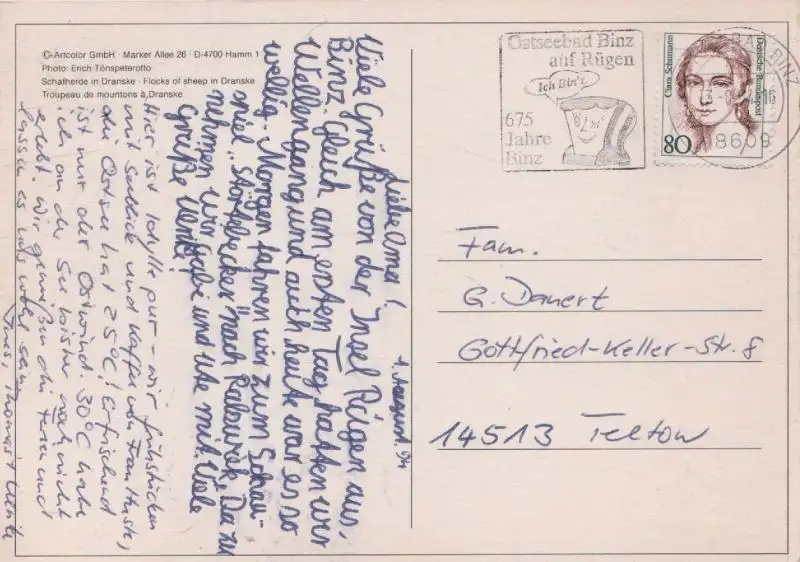 © Artcolor GmbH · Marker Allee 26 · D-4700 Hamm 1
Photo: Erich Tönspeterotto
Schafherde in Dranske · Flocks of sheep in Dranske
Troupeau de mountons à Dranske
Ostseebad Binz
auf Rügen
Ich Bin'z
675
Jahre
Binz
Clara Schumann
Deutsche Bundespost
80
BINZ
8609
1. August 94
Liebe Oma!
Viele Grüße von der Insel Rügen aus,
Binz. Gleich am ersten Tag hatten wir
Wellengang und auch heute war es so
wellig. Morgen fahren wir zum Schau-
spiel "Störtebecker" nach Ralswiek. Da zu
nehmen wir Gabi und Ute mit. Viele
Grüße Ulrike!
Hier ist Idylle pur – wir frühstücken
mit Seeblick und Kaffee von Frau
die Ostsee hat 25°C! Erfrischend
ist nur der Ostwind. 30°C habe
ich an der See bisher noch nicht
erlebt. Wir genießen die Ferien und
lassen es uns wohl sein
Ines, Thomas + Ulrike
Fam.
G. Danert
Gottfried-Keller-Str. 8
14513 Teltow